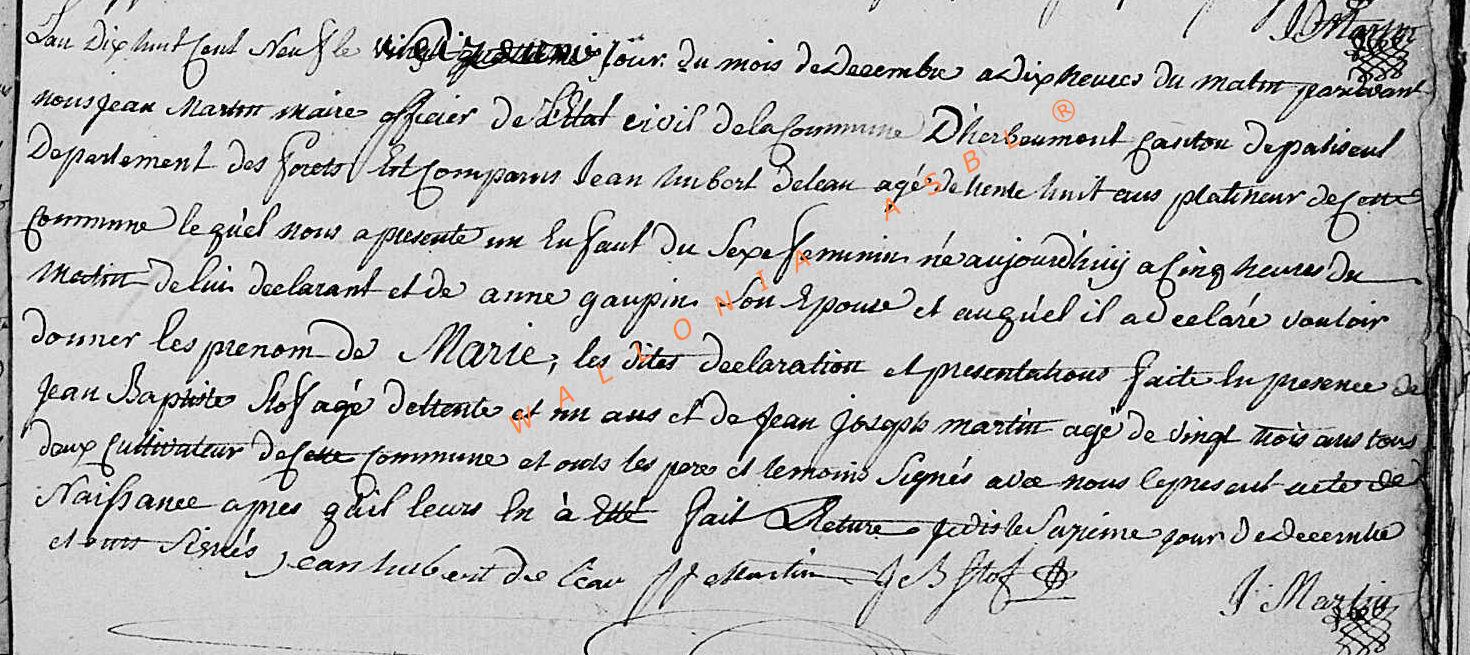 J Martin
Lan Dix huit Cent Neuf le jour du mois de Decembre a Dix heures du matin pardevant
nous jean Martin maire officier de L'Etat civil de la Commune D'herbeumont Canton de paliseul
Departement des forets Est Comparus Jean hubert Deleau agé de trente huit ans platineur de Cette
Commune le quel nous a presenté un Enfant du Sexe feminin né aujourdhuij a Cinq heures Du
Matin de lui declarant et de anne gaupin Son Epouse et auquel il a declaré vouloir
donner les prenom de Marie, les dites declaration et presentations faite En presence de
Jean Baptiste Stof agé de trente et un ans et de Jean joseph martin agé de vingt trois ans tous
deux Cultivateur de Cette Commune et onts les pere et temoins Signés avec nous le present acte de
Naissance apres quil leurs En à Etté fait Lecture jedis le Sazieme jour De decembre
et onts Signés jean hubert de leau JJ Martin J B Stof
J. Martin
WALLONIA ASBL ®